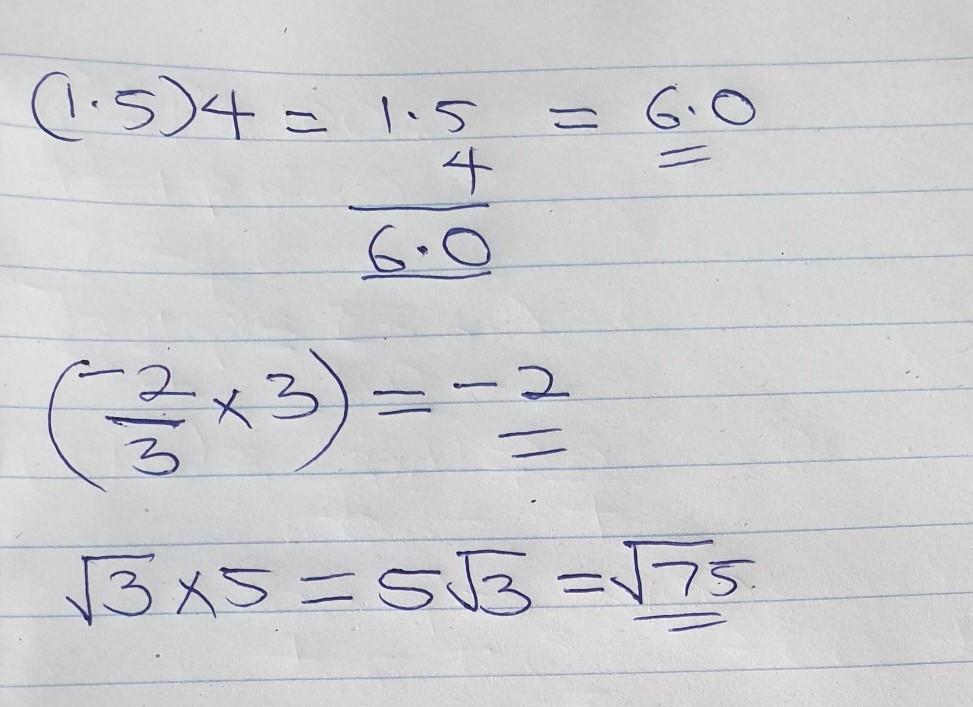 (1.5)4 = 1.5 = 6.0
4
6.0
(-2/3 × 3) = -2
√3 × 5 = 5√3 = √75